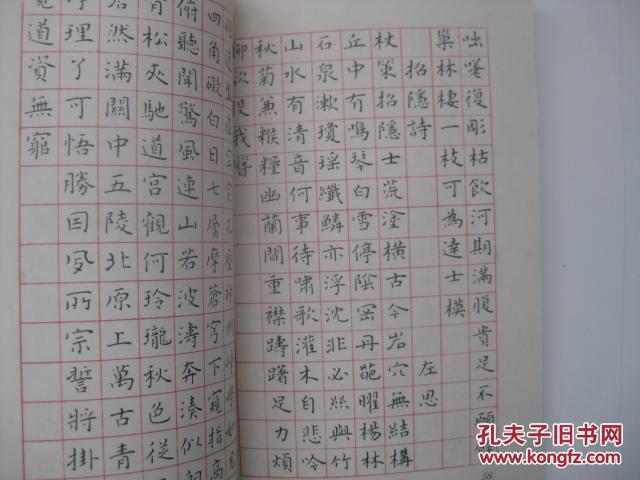 咄嗟復彫枯飲河期滿腹貴足不願
巢林棲一枝可為達士模
招隱詩 左思
杖策招隱士荒塗橫古今岩穴無結構
丘中有鳴琴白雪停陰岡丹葩曜楊林
石泉漱瓊瑤纖鱗亦浮沈非必絲與竹
山水有清音何事待嘯歌灌木自悲吟
秋菊兼糇糧幽蘭間重襟躊躇足力煩
聊欲投我簪
四角礙白日七層摩蒼穹下窺指高
俯聽聞驚風連山若波濤奔湊似
青松夾馳道宮觀何玲瓏秋色從
然滿關中五陵北原上萬古青
理了可悟勝因夙所宗誓將掛
道資無窮
孔夫子旧书网
KONGFZ.COM